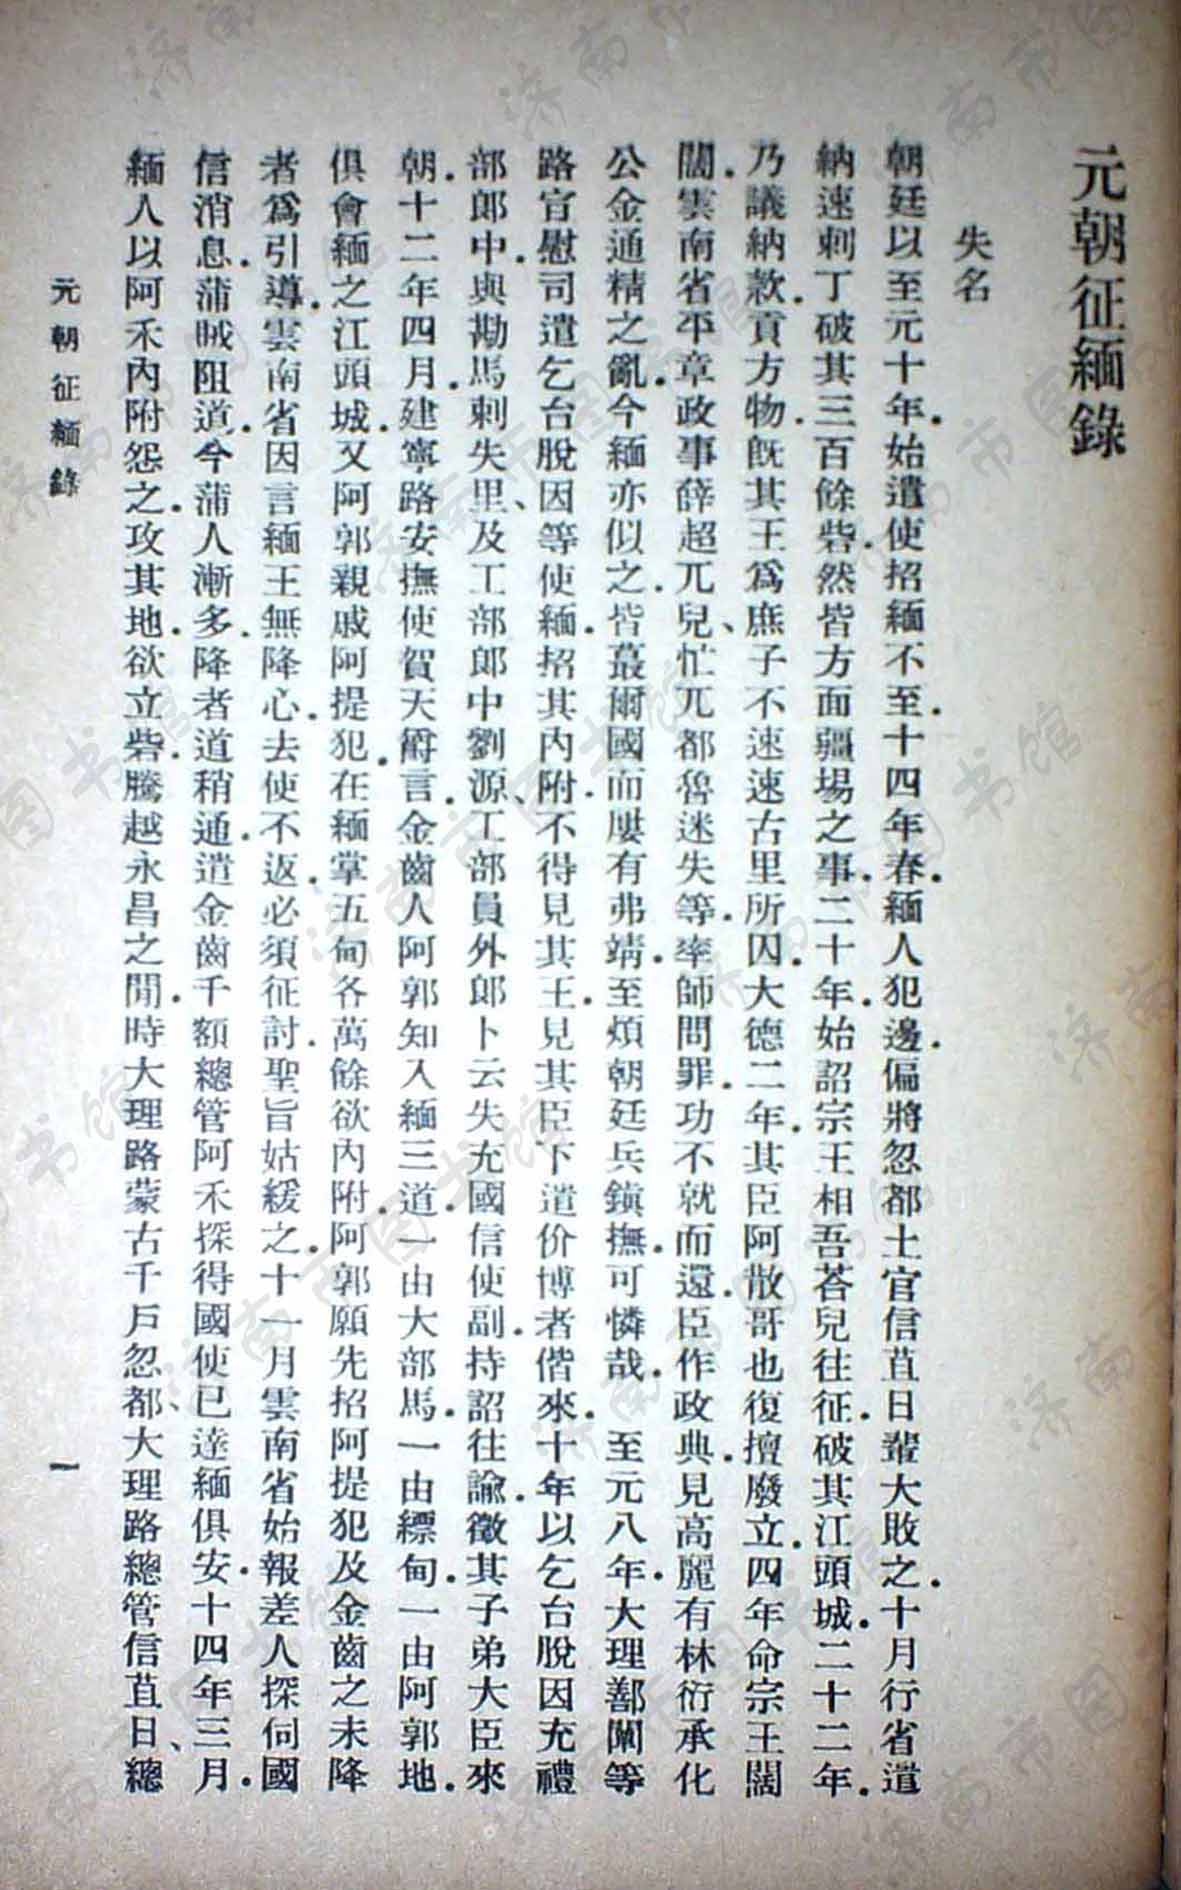 元朝征緬錄
失名
朝廷以至元十年.始遣使招緬不至.十四年春.緬人犯邊.偏將忽都土官信苴日輩大敗之.十月行省遣
納速剌丁破其三百餘砦.然皆方面疆場之事.二十年.始詔宗王相吾荅兒往征.破其江頭城.二十二年.
乃議納款.貢方物.旣其王爲庶子不速速古里所囚.大德二年.其臣阿散哥也復擅廢立.四年命宗王闊
闊.雲南省平章政事薛超兀兒、忙兀都魯迷失等.率師問罪.功不就而還.臣作政典.見高麗有林衍承化
公金通精之亂.今緬亦似之.皆蕞爾國而屢有弗靖.至煩朝廷兵鎭撫.可憐哉.至元八年.大理鄯闡等
路官慰司遣乞台脫因等使緬.招其內附.不得見其王.見其臣下遣价博者偕來.十年以乞台脫因充禮
部郎中.與勘馬剌失里、及工部郎中劉源、工部員外郎卜云失充國信使副.持詔往諭.徵其子弟大臣來
朝.十二年四月.建寧路安撫使賀天爵言.金齒人阿郭知入緬三道.一由大部馬.一由縹甸.一由阿郭地.
俱會緬之江頭城.又阿郭親戚阿提犯.在緬掌五甸各萬餘欲內附.阿郭願先招阿提犯及金齒之未降
者爲引導.雲南省因言緬王無降心.去使不返.必須征討.聖旨姑緩之.十一月雲南省始報差人探伺國
信消息.蒲賊阻道.今蒲人漸多.降者道稍通.遣金齒千額總管阿禾探得國使已達緬俱安.十四年三月.
緬人以阿禾內附怨之.攻其地.欲立砦.騰越永昌之閒.時大理路蒙古千戶忽都、大理路總管信苴日、總
元朝征緬錄
一